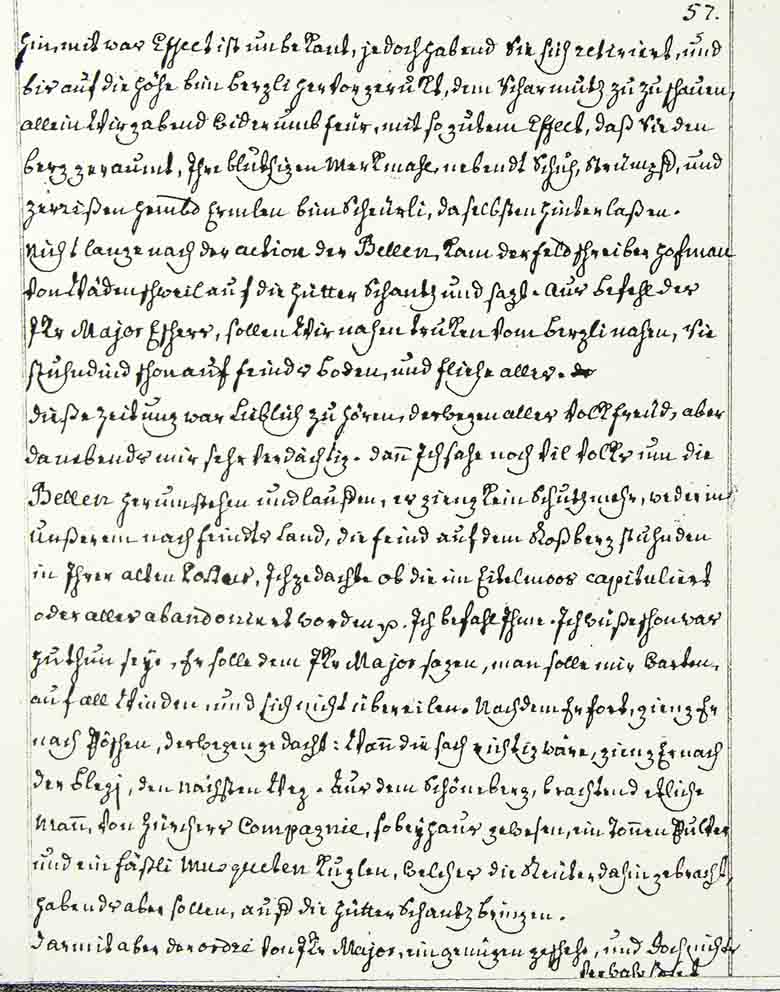 57.
hin, mit was Effect ist unbekant, jedoch habend Sie sich retiriert, und
bis auf die höhe bim bergli hervorgerukt, dem Scharmutz zu zu schauen,
allein Wir gabend widerumb feür, mit so gutem Effect, daß Sie den
berg geraumt, Ihre bluthigen Merkmahl, nebendt Schuh, Strümpff, und
zerrißen hembd Ermlen bim Scheürli, daselbsten hinterlaßen.
Nicht lange nach der action der Bellen, kam der feldschreiber Hofman
von Wädenschweil auf die Hütter Schantz und sagt. Aus befehl des
Jkr Major Eschers, sollen Wir nahen truken vom bergli nahen, Sie
stuhndind schon auf feinds boden, und fliehe alles.
dieße zeitung war lieblich zu hören, deswegen alles volk freüd, aber
danebends mir sehr verdächtig. dan̄ Ich sahe noch vil volks um die
Bellen herumstehen und lauffen, es gieng kein Schutz mehr, weder in
unßerem nach feindts land, die feind auf dem Roßberg stuhnden
in Ihrer alten Postur, Ich gedachte ob die im Eitelmoos capituliert
oder alles abandoniert worden. Ich befahl Ihme. Ich wüße schon was
zu thun seye, Er solle dem Jkr Major sagen, man solle mir warten,
auf all Winden, und sich nicht übereilen. Nachdem Er fort, gieng Er
nach, deswegen gedacht: Wan̄ die sach richtig wäre, gieng Er nach
der Elegj, den nächsten Weg. Aus dem Schöneberg, brachtend etliche
Man̄, von Zürchers Compagnie, so bey haus gewesen, ein Ton̄en Pulver
und ein fäßli Musqueten Kuglen, welches die Reüter dahin gebracht,
habends aber sollen, auff die Hütter Schantz bringen.
Darmit aber der ordre von Jkr Major, ein genügen geschehe, und doch nichts